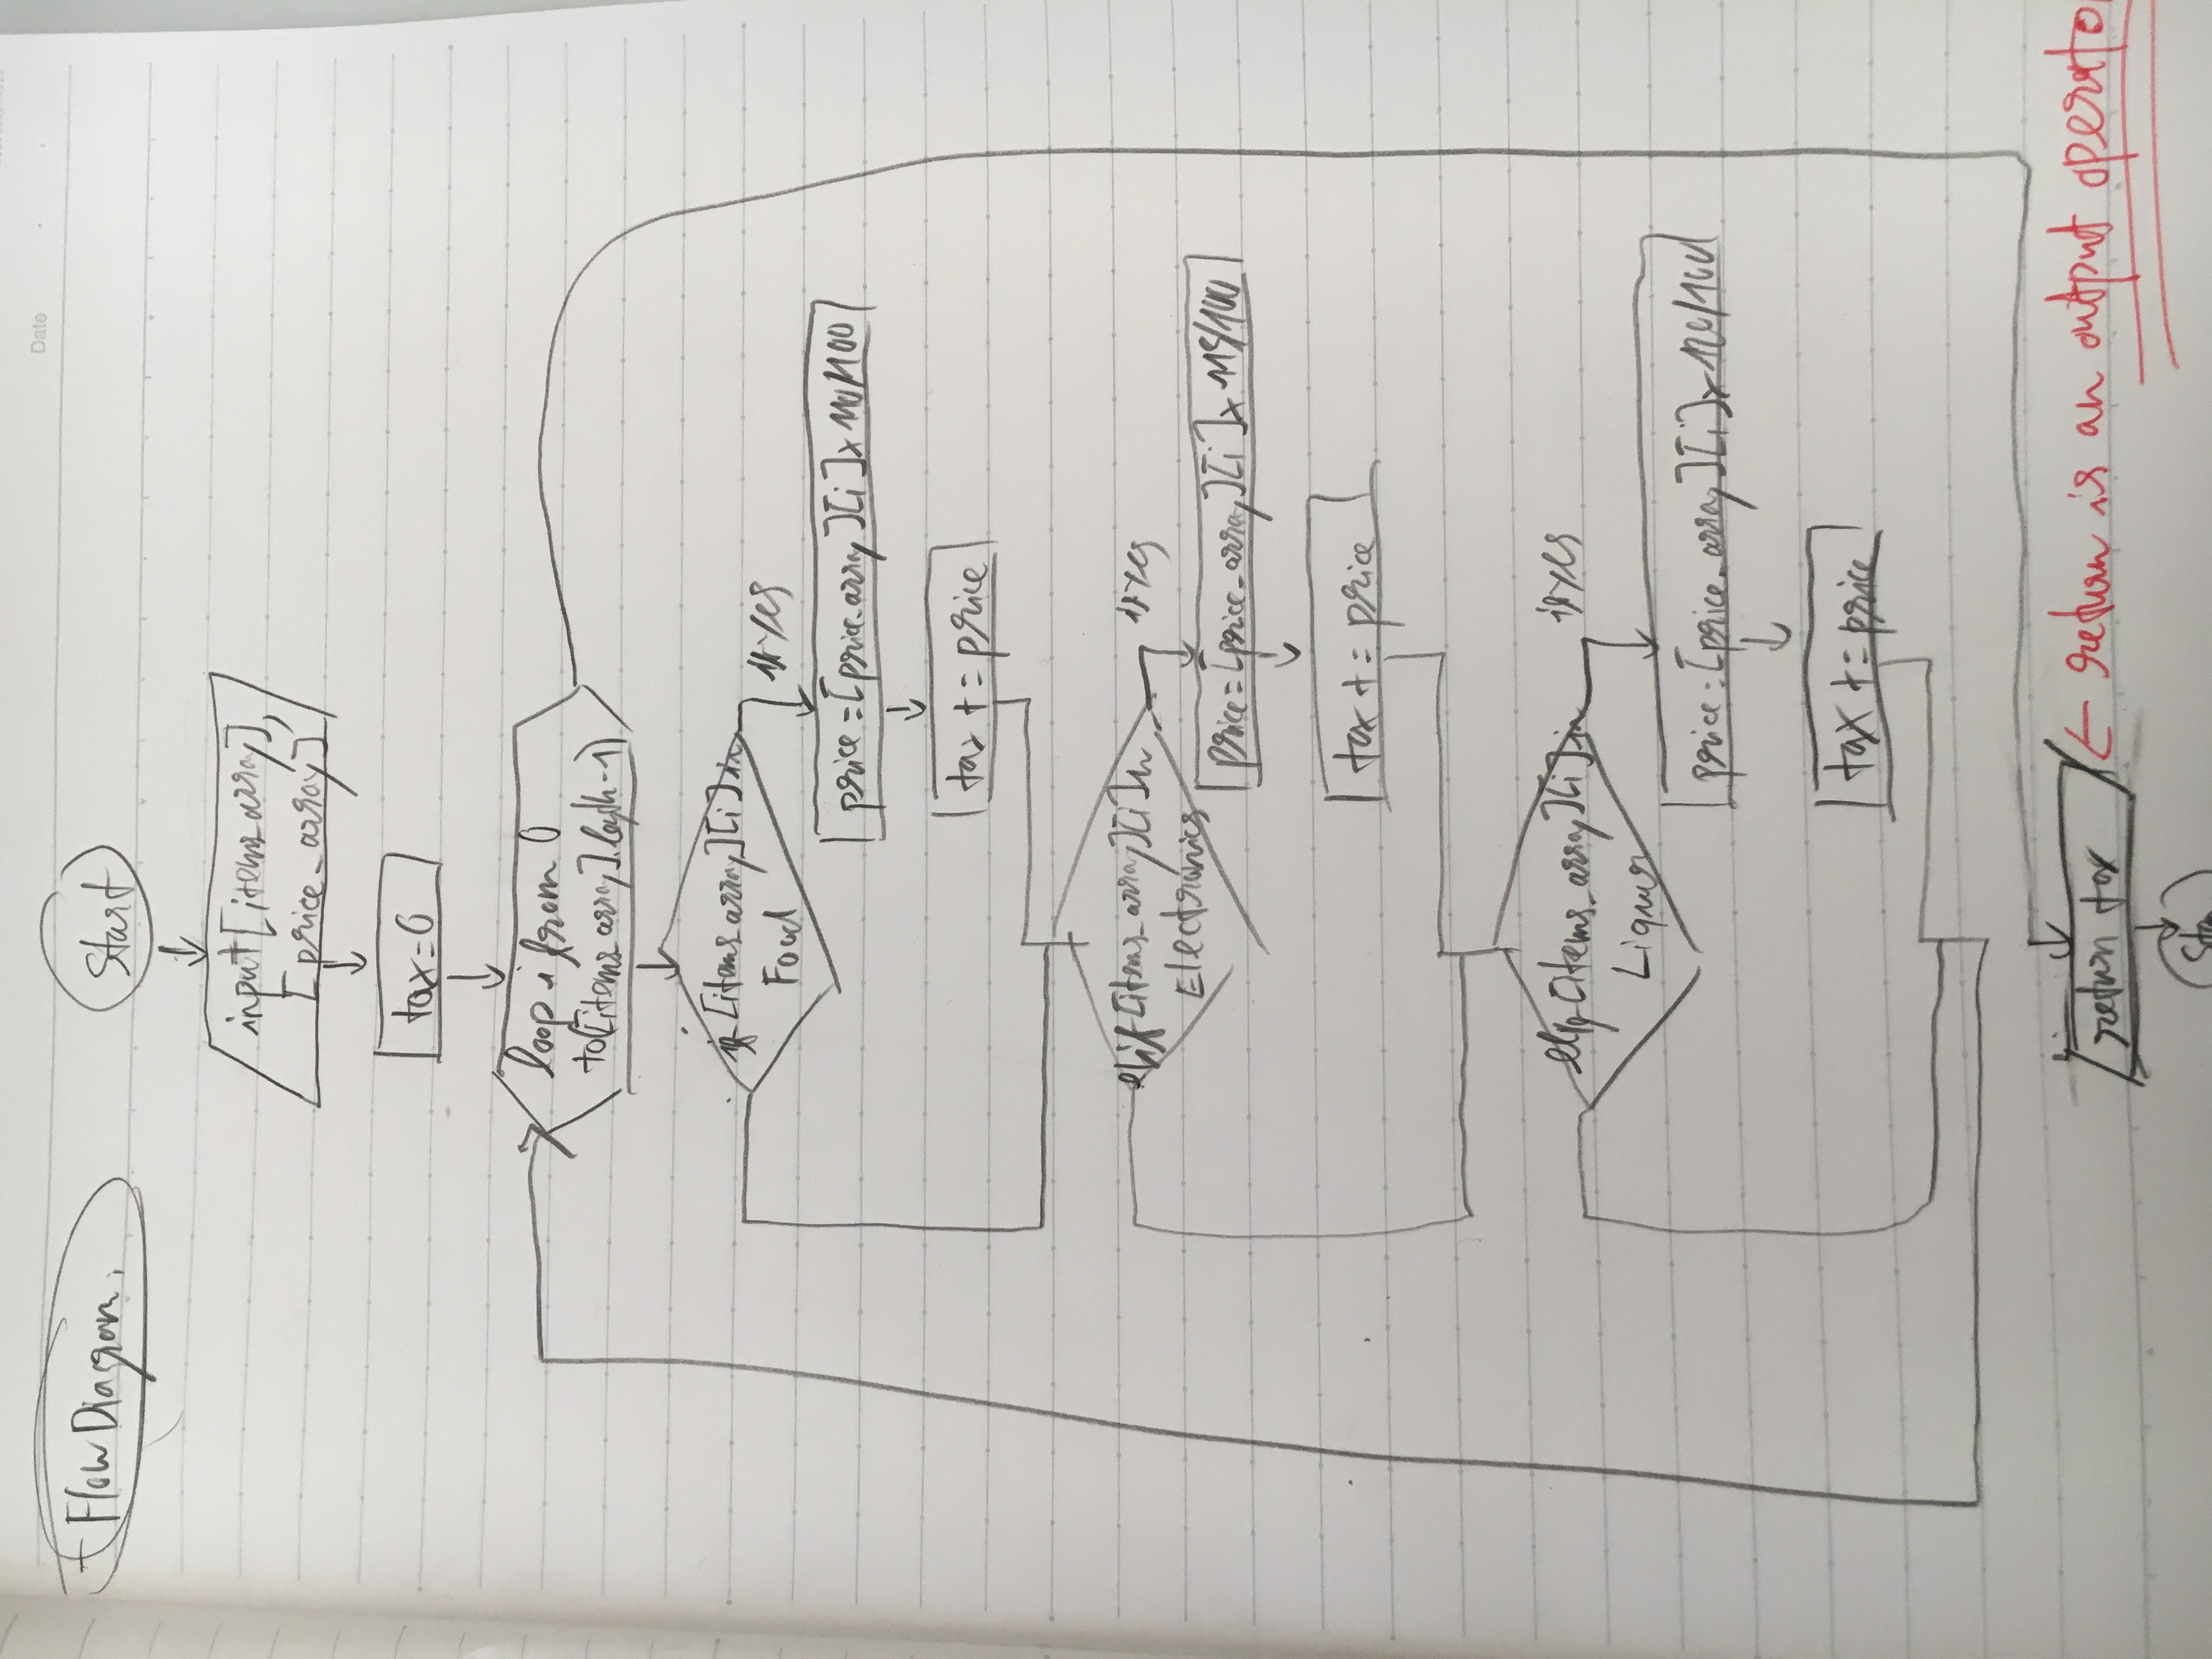 Date
Flow Diagram.
Start
input [items_array],
[price_array]
tax=0
loop i from 0
to([items_array].length-1)
if [items_array][i] in
Food
if yes
price = [price_array][i] x 110/100
tax += price
elif [items_array][i] in
Electronics
if yes
price = [price_array][i] x 115/100
tax += price
elif [items_array][i] in
Liquor
if yes
price = [price_array][i] x 120/100
tax += price
return tax
← return is an output operato